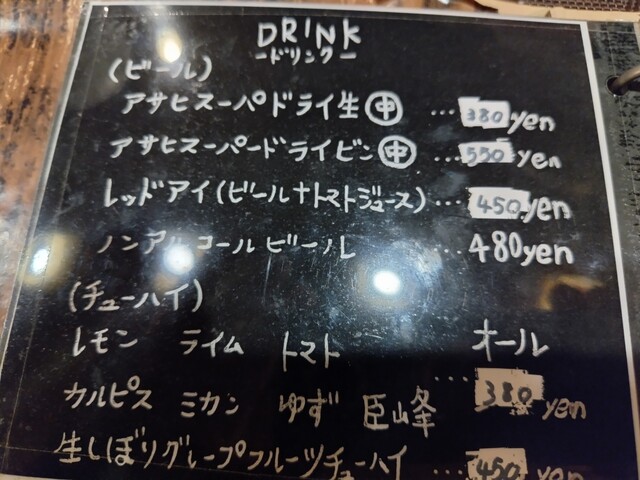 DRINK
ードリンクー
(ビール)
アサヒスーパドライ生㊥ …380yen
アサヒスーパードライビン㊥ …550yen
レッドアイ(ビール+トマトジュース)…450yen
ノンアルコールビール …480yen
(チューハイ)
レモン ライム トマト オール
カルピス ミカン ゆず 巨峰 …380yen
生しぼりグレープフルーツチューハイ …450yen